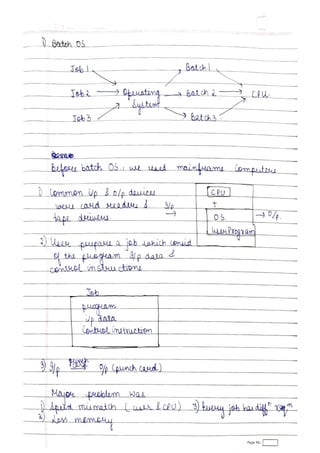 1) Batch OS
Job 1 Batch 1
Job 2 → Operating System → Batch 2 → CPU
Job 3 Batch 3
Before batch OS, we used mainframe computers
1) Common i/p & o/p devices
were card readers &
tape drivers
I/p → CPU + OS User Program → O/p.
2) User prepares a job which consist
of the program I/p data &
control instructions
Job
program
i/p data
Control instruction
3) I/p I/p (punch card)
Major problem was
1) Speed mismatch (user & CPU) 3) Every job has diffⁿ reqᵐ
2) Less memory
Page No.